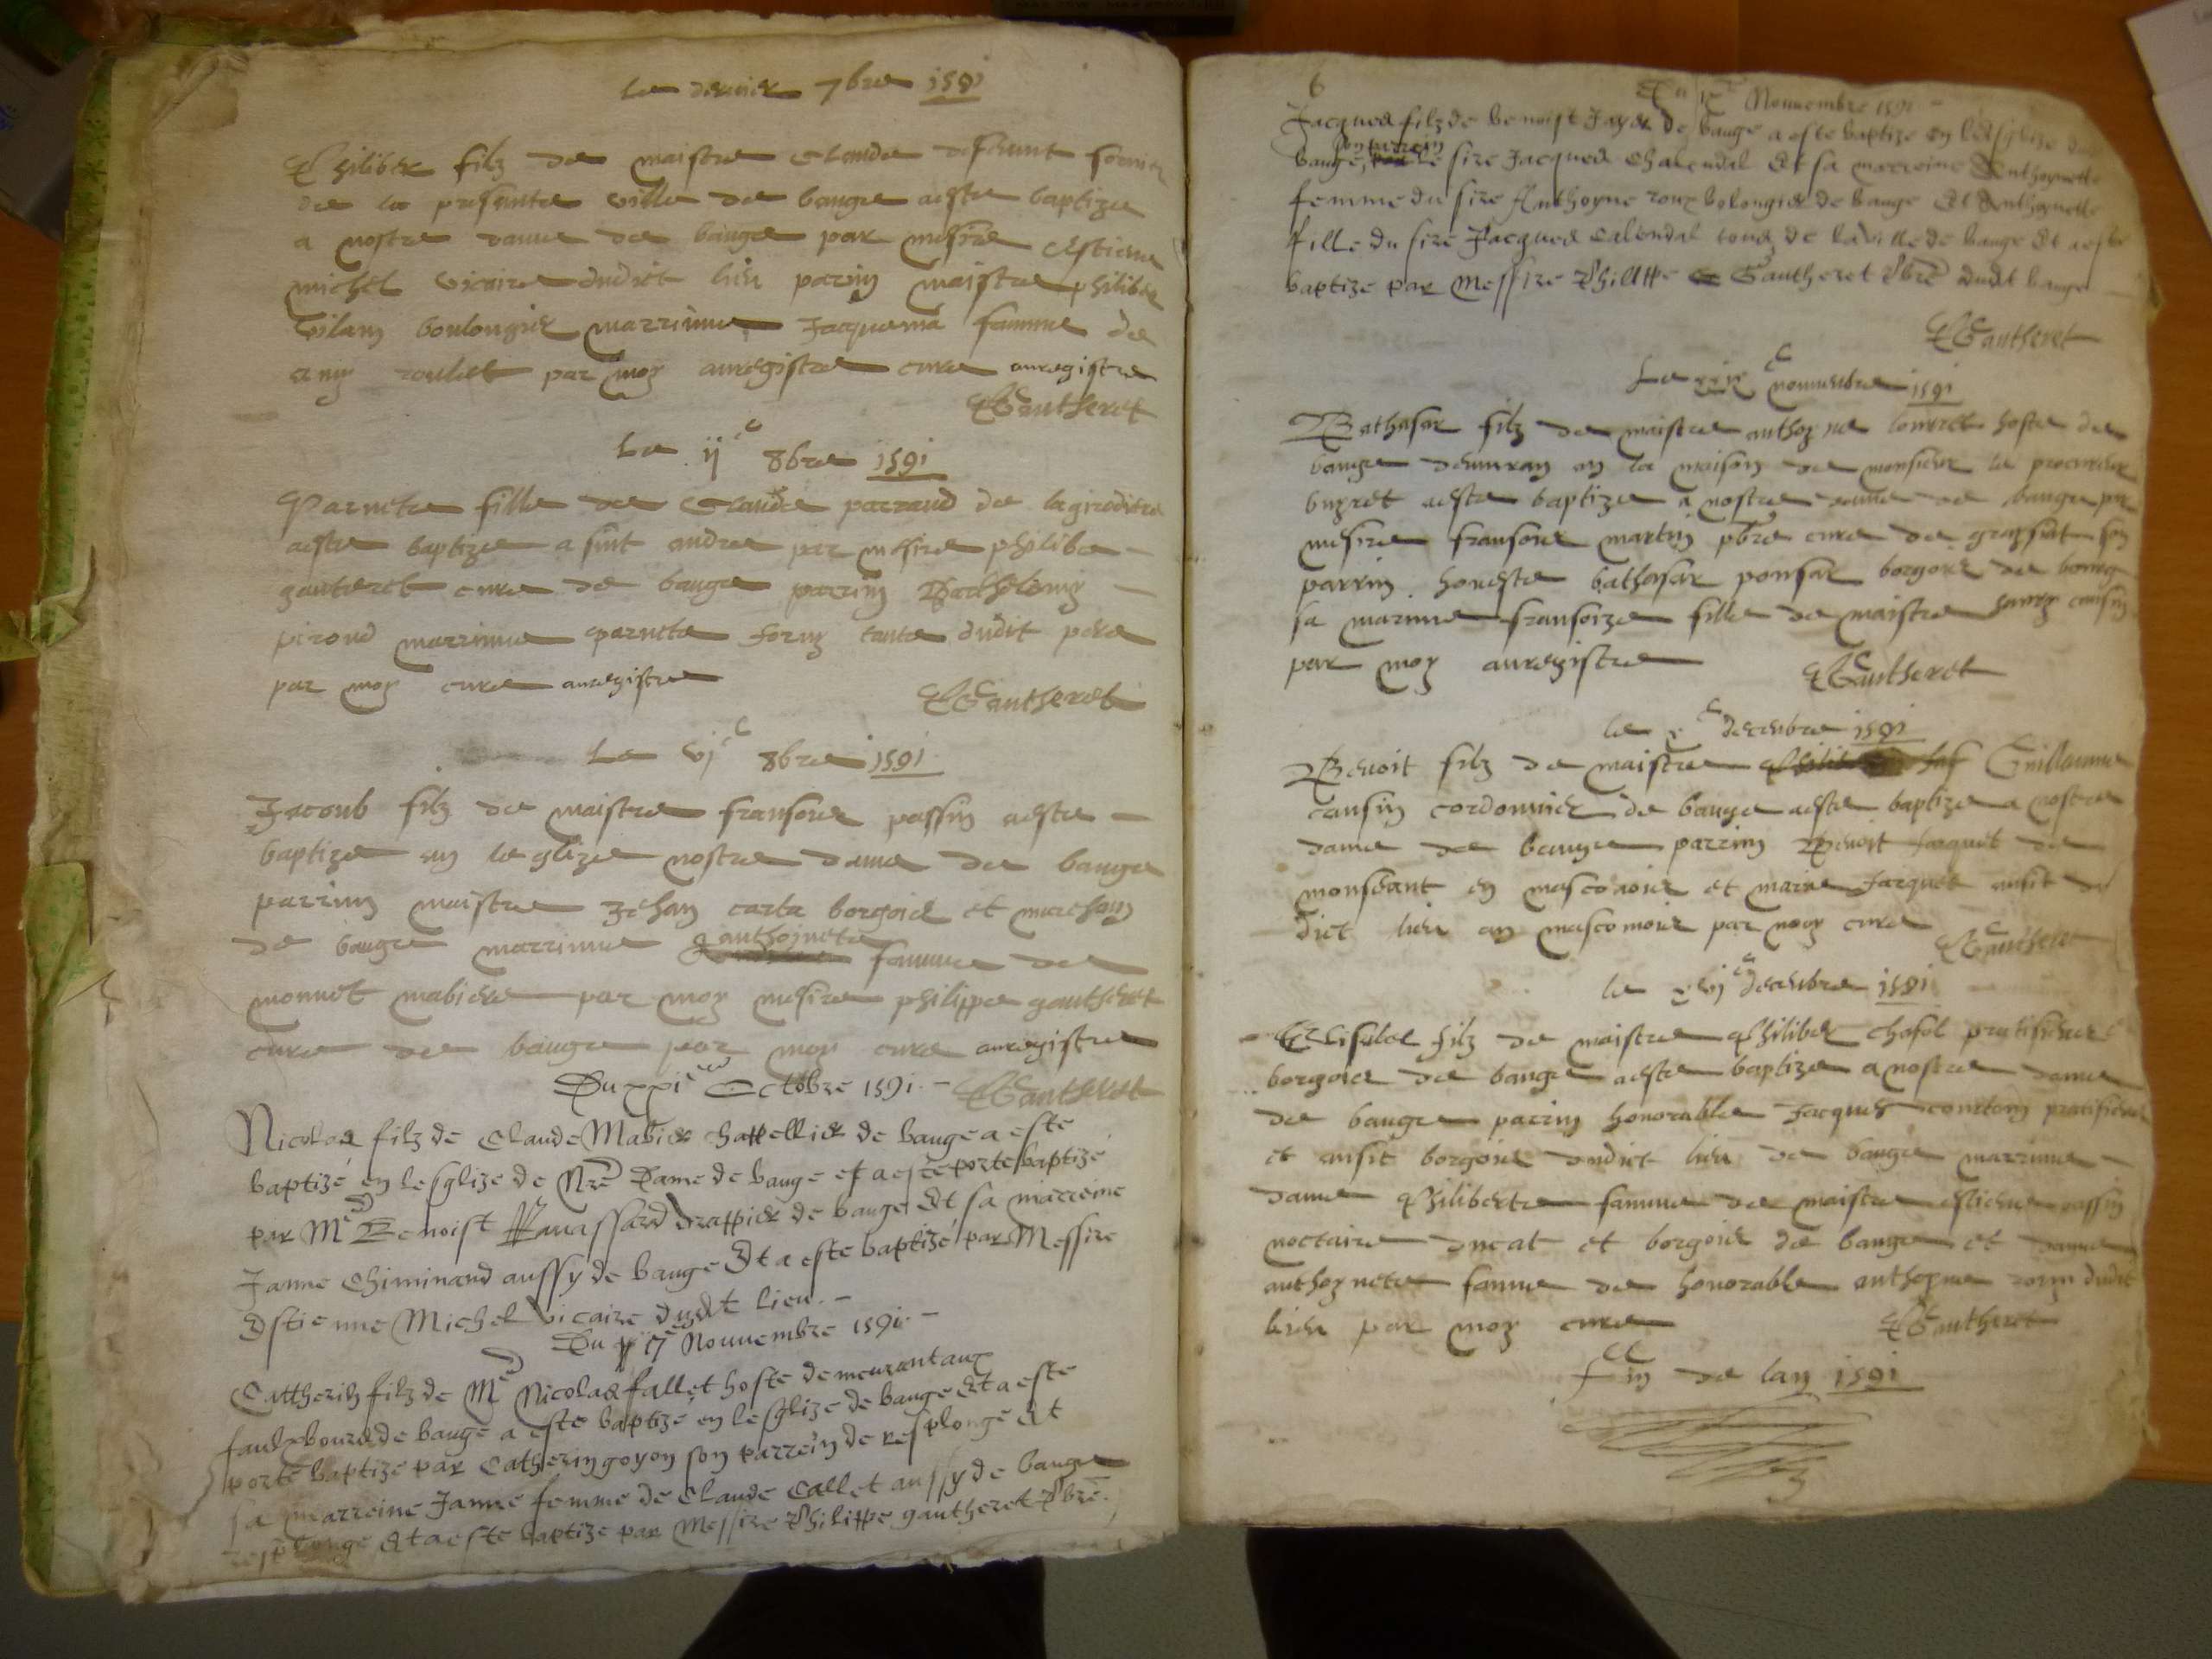 Le dernier 7bre 1591
Philiber filz de maistre Claude defeunt fornier
de la presante ville de bauge aeste baptize
a nostre dame de bauge par mesire Estiene
michel vicaire dudict lieu parin maistre philiber
vilain boulongier marrinne Jacquema famme de
roulet par moy anregistre cure anregistre
PGautheret
Le ij e 8bre 1591
Parnete fille de Claude parraud de la
aeste baptize a sint andre par mesire philibe
gauteret cure de bauge parrin Barthelemy
piroud marrinne parnete tante dudit pere
par moy cure anregistre
PGautheret
Le vj e 8bre 1591
Jacoub filz de maistre fransois passin aeste
baptize an leglize nostre dame de bauge
parrin maistre Jehan carta borgois et marchan
de bauge marrinne anthoinete famme de
monnet mabiere par moy mesire philippe gautheret
cure de bauge par moy cure anregistre
Du xxi e Octobre 1591
PGautheret
Nicolas filz de Claude Mabier chappellier de bauge a este
baptizé en lesglize de Nre Dame de bauge et a este porte baptizé
par Me Benoist drappier de bauge Et sa marreine
Janne Chiminand aussy de bauge Et a este baptizé par Messire
Estienne Michel vicaire dudt lieu.
Du 17 e Nouuembre 1591
Catherin filz de Me Nicolas fallet hoste demeurant aux
faulxbourgs de bauge a este baptizé en lesglize de bauge et a este
porte baptize par Catherin goyon son parrein de resplonge et
sa marreine Janne femme de Claude Callet aussy de bauge
resplonge Et a este baptize par Messire Philippe gautheret Pbre.
6
Nouuembre 1591
Jacques filz de benoist Jayr de bauge a este baptize en lesglize de
son parrein
bauge, le sire Jacques Chalendal Et sa marreine Anthoynette
femme du sire Anthoyne roux bolongier de bauge Et Anthoynette
fille du sire Jacques Calendal tous de la ville de bauge Et a este
baptize par Messire Philippe Gautheret Pbre dudt bauge
PGautheret
Le e nouuenbre 1591
Bathasar filz de maistre anthoyne hoste de
bauge demuran an la maison de monsieur le procureur
buyret aeste baptize a nostre dame de bauge par
mesire fransois martin pbre cure de son
parrin honeste bathasar ponsar borgois de bourg
sa marinne fransoize fille de maistre
par moy anregistre
PGautheret
le x e decenbre 1591
Benoit filz de maistre Guillaume
cansin cordonnier de bauge aeste baptize a nostre
dame de bauge parrin Benoit Jaquet de
monseant en masconois et marie Jarquet ausit du
dict lieu an masconois par moy cure
PGautheret
le xvj e decenbre 1591
filz de maistre Philiber chafol pratisien
borgois de bauge aeste baptize a nostre dame
de bauge parrin honorable Jacques pratisien
et ausit borgois dudict lieu de bauge marrinne
dame Philiberte famme de maistre estiene passin
noctaire ducat et borgois de bauge et dame
anthoynete famme de honorable anthoyne dudit
lieu par moy cure
PGautheret
fin de lan 1591